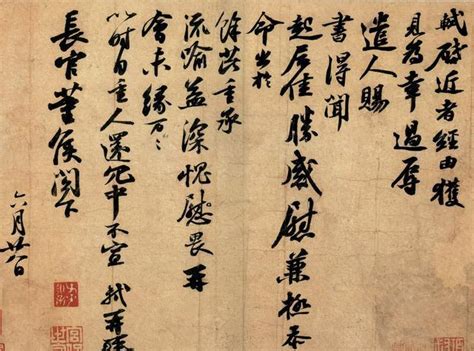 軾啓近者經由獲
見為幸過辱
遣人賜
書得聞
起居佳勝感慰兼極忝
命出於
餘芘重承
流喻益深愧慰畏再
會未緣萬〻
以時自重人還冗中不宣 軾再拜
長官董侯閣下
六月廿八日